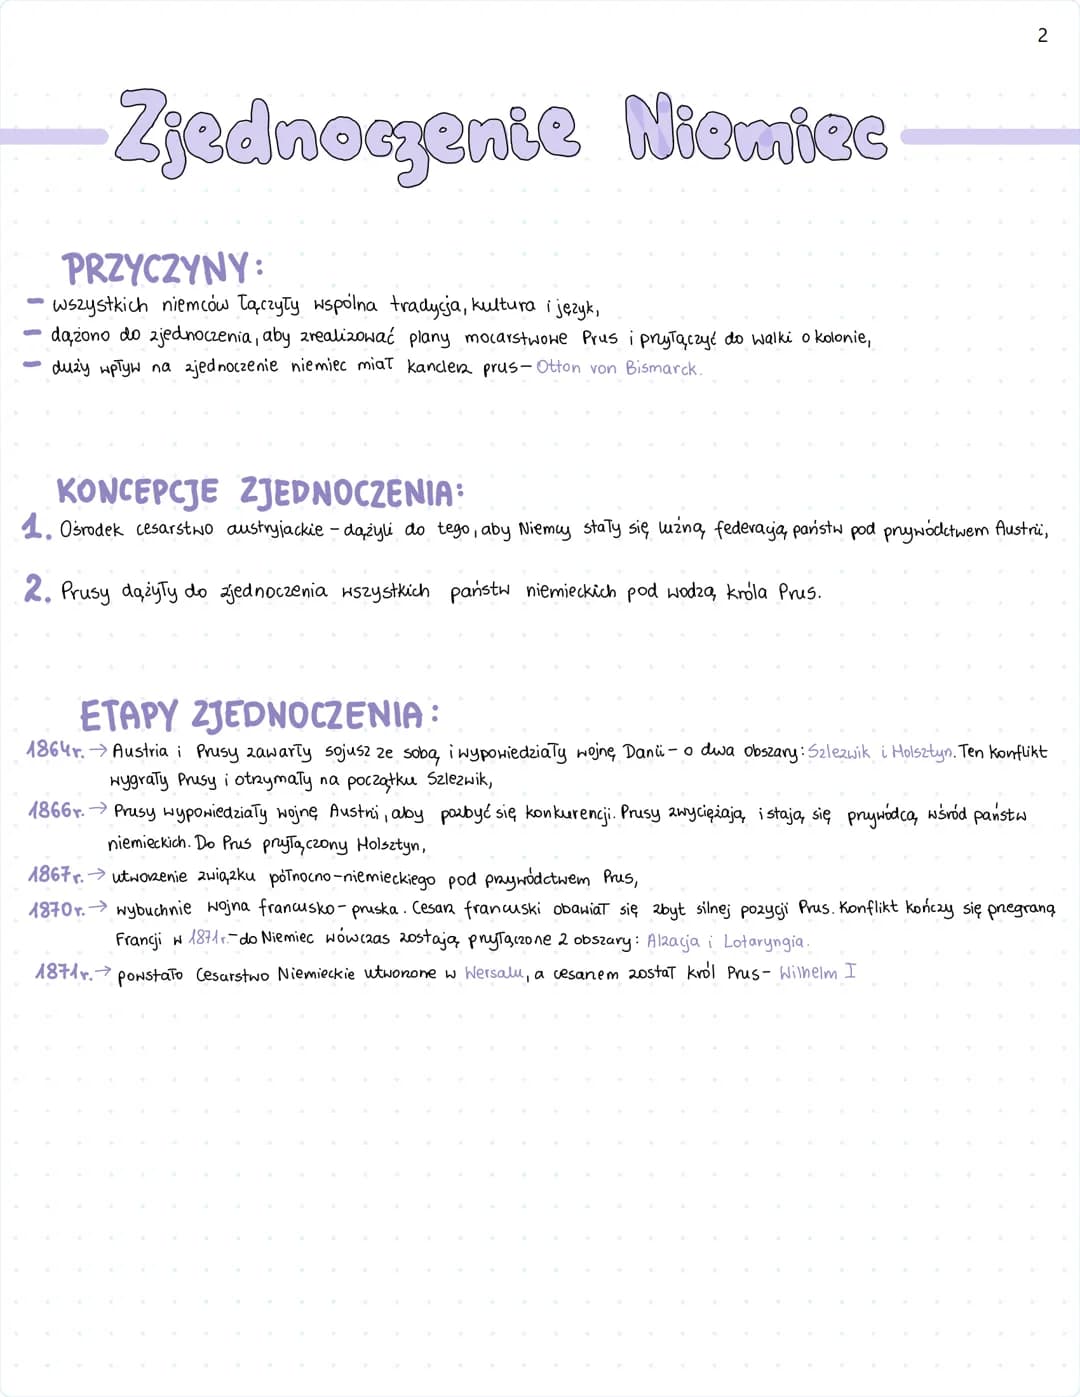 2
Zjednoczenie Niemiec
PRZYCZYNY:
– wszystkich niemców łączyły wspólna tradycja, kultura i język,
– dążono do zjednoczenia, aby zrealizować plany mocarstwowe Prus i przyłączyć do walki o kolonie,
– duży wpływ na zjednoczenie niemiec miał kanclerz prus – Otton von Bismarck.
KONCEPCJE ZJEDNOCZENIA:
1. Ośrodek cesarstwo austryjackie – dążyli do tego, aby Niemcy stały się luźną federacją państw pod przywództwem Austrii,
2. Prusy dążyły do zjednoczenia wszystkich państw niemieckich pod wodzą króla Prus.
ETAPY ZJEDNOCZENIA:
1864r. → Austria i Prusy zawarły sojusz ze sobą i wypowiedziały wojnę Danii – o dwa obszary: Szlezwik i Holsztyn. Ten konflikt
wygrały Prusy i otrzymały na początku Szlezwik,
1866r. → Prusy wypowiedziały wojnę Austrii, aby pozbyć się konkurencji. Prusy zwyciężają i stają się przywódcą wśród państw
niemieckich. Do Prus przyłączony Holsztyn,
1867r. → utworzenie związku północno-niemieckiego pod przywództwem Prus,
1870r. → wybuchnie wojna francusko-pruska. Cesarz francuski obawiał się zbyt silnej pozycji Prus. Konflikt kończy się przegraną
Francji w 1871r. – do Niemiec wówczas zostają przyłączone 2 obszary: Alzacja i Lotaryngia.
1871r. → powstało Cesarstwo Niemieckie utworzone w Wersalu, a cesarzem został król Prus – Wilhelm I